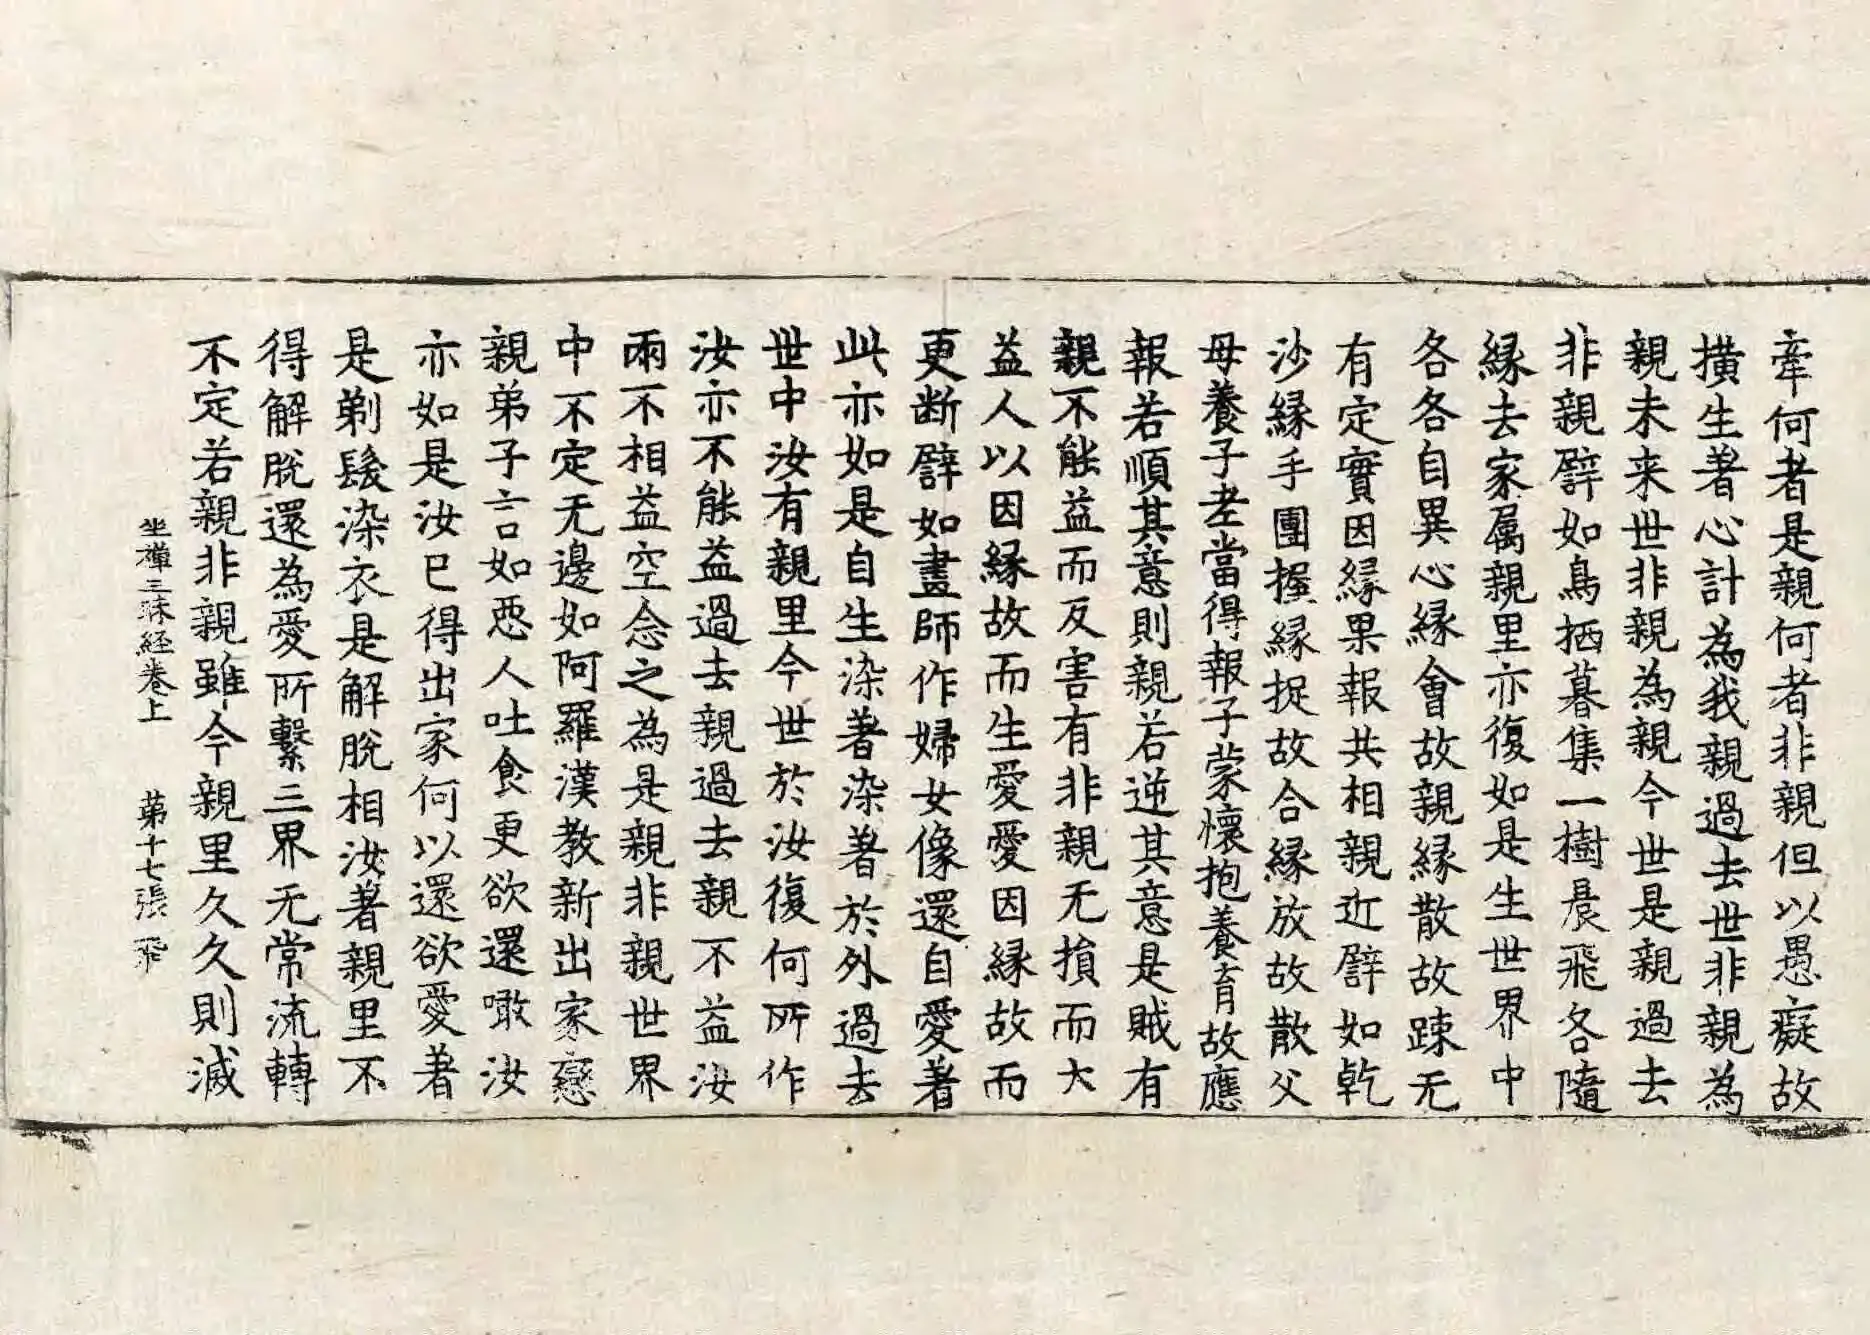 牽何者是親何者非親但以愚癡故
撗生著心計為我親過去世非親為
親未来世非親為親今世是親過去
非親譬如鳥栖暮集一樹晨飛各隨
縁去家属親里亦復如是生世界中
各各自異心縁會故親縁散故踈无
有定實因縁果報共相親近譬如乾
沙縁手團握縁捉故合縁放故散父
母養子老當得報子蒙懷抱養育故應
報若順其意則親若逆其意是賊有
親不能益而反害有非親无損而大
益人以因縁故而生愛愛因縁故而
更断譬如畫師作婦女像還自愛著
此亦如是自生染著染著於外過去
世中汝有親里今世於汝復何所作
汝亦不能益過去親過去親不益汝
兩不相益空念之為是親非親世界
中不定无邊如阿羅漢教新出家戀
親弟子言如惡人吐食更欲還噉汝
亦如是汝已得出家何以還欲愛著
是剃髮染衣是解脫相汝著親里不
得解脫還為愛所繫三界无常流轉
不定若親非親雖今親里久久則滅
坐禪三昧経卷上　第十七張　飛